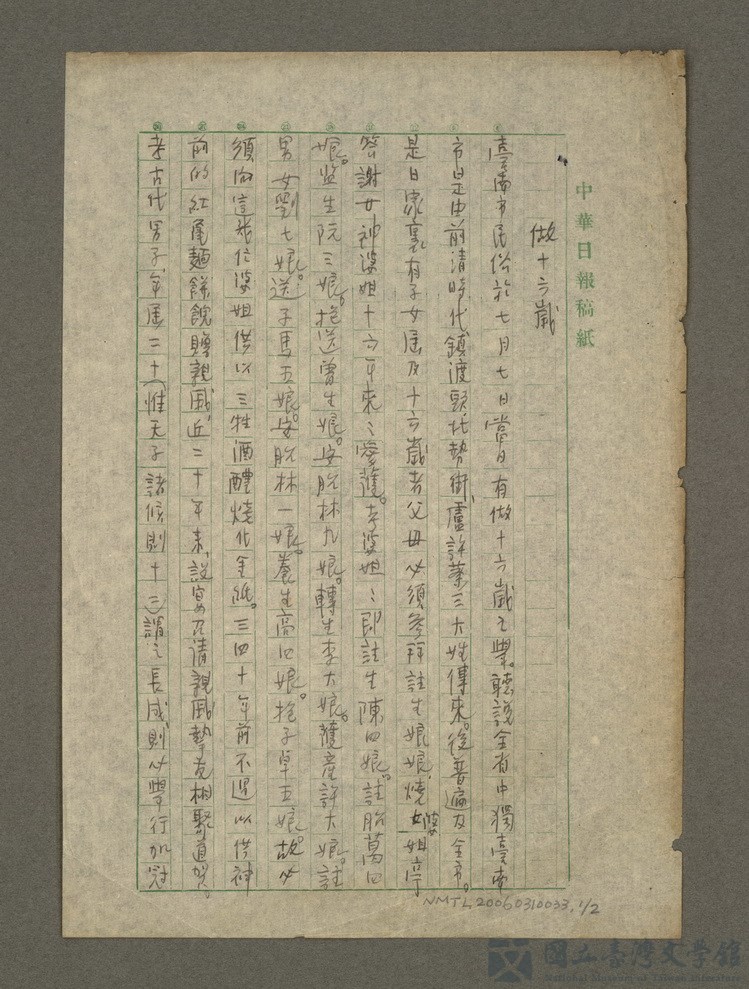 中華日報稿紙
做十六歲
臺南市民俗於七月七日當日有做十六歲之舉。聽說全省中獨臺南
市是由前清時代鎮渡頭北勢街、盧許葉三大姓傳來。後普遍及全市。
是日家裏有子女屆及十六歲者父母必須參拜註生娘娘、燒婆姐亭
答謝女神婆姐十六年來之愛護。夫婆姐之即註生陳四娘。註胎萬四
娘。監生阮三娘。抱送曾生娘。安胎林九娘。轉生李大娘。護產許大娘。註
男女劉七娘。送子馬五娘。安胎林一娘。養生高四娘。抱子卓五娘。故必
須向這幾位婆姐供以三牲酒醴燒化金紙。三四十年前不過以供神
前的紅龜麵餅餽贈親戚、近二十年來、設宴召請親戚摯友相聚道賀。
考古代男子、年屆二十（惟天子諸候則十二）謂之長成、則必舉行加冠
NMTL20060310033.1/2
國立臺灣文學館
National Museum of Taiwan Literature